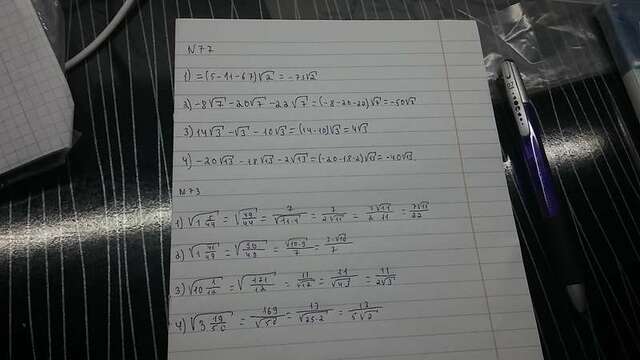 N 77
1) = (5-11-67)√2 = -73√2
2) -8√7 - 20√7 - 22√7 = (-8-20-22)√7 = -50√7
3) 14√3 - √3 - 10√3 = (14-10)√3 = 4√3
4) -20√13 - 18√13 - 2√13 = (-20-18-2)√13 = -40√13
N 73
1) √1 5/44 = √49/44 = 7/√11·4 = 7/2√11 = 7√11/2·11 = 7√11/22
2) √1 41/49 = √90/49 = √10·9/7 = 3√10/7
3) √10 1/12 = √121/12 = 11/√12 = 11/√4·3 = 11/2√3
4) √3 19/50 = 169/√50 = 13/√25·2 = 13/5√2